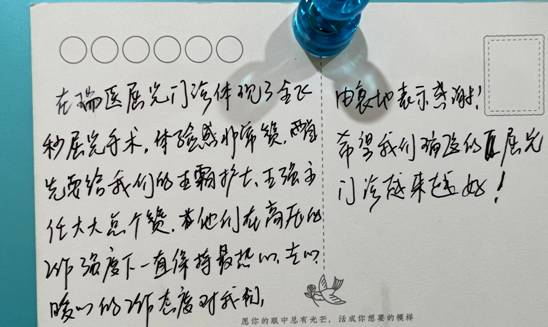 在瑞医屈光门诊体现了全飞
秒屈光手术，体验感非常赞，首
先要给我们的王霜护士、王强主
任大大点个赞，他们在高压的
工作强度下一直保持最热心、
暖心的工作态度对我们，
由衷地表示感谢！
希望我们瑞医的屈光
门诊越来越好！
愿你的眼中总有光芒，活成你想要的模样